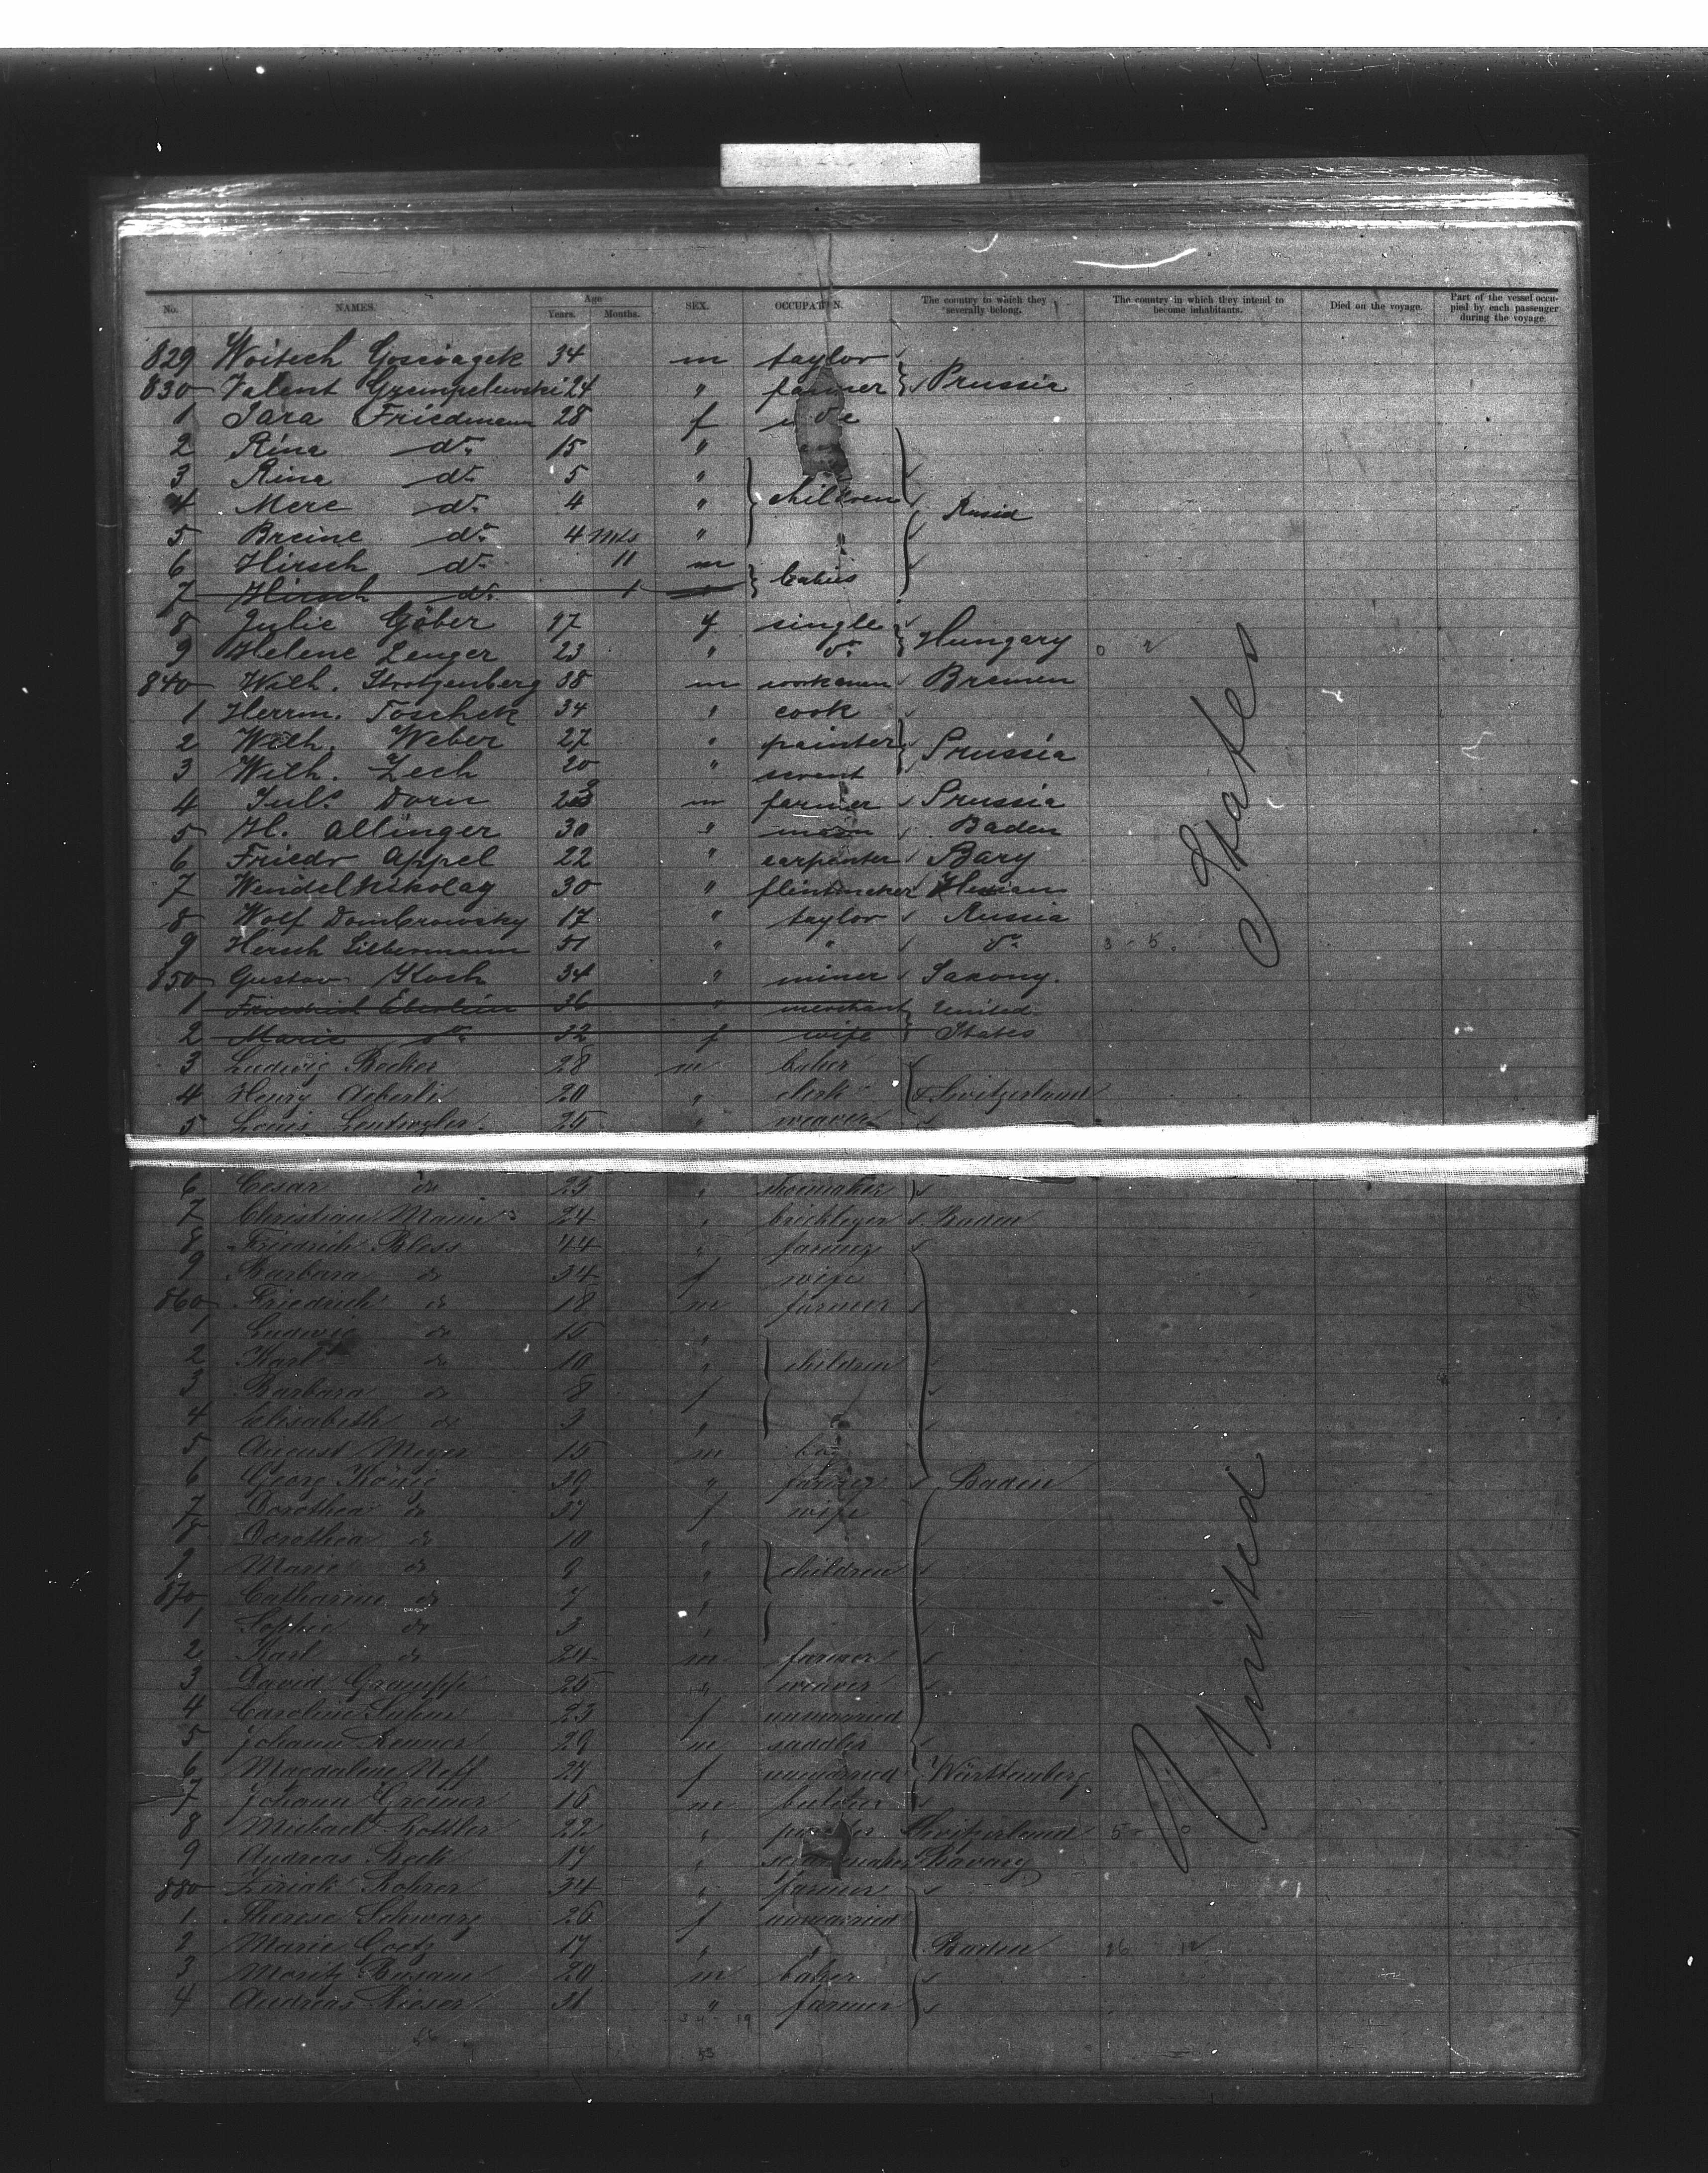 No. NAMES. Age Years. Months. SEX. OCCUPATION. The country in which they severally belong. The country in which they intend to become inhabitants. Died on the voyage. Part of the vessel occupied by each passenger during the voyage.
829 Woitech 34 m taylor
830 Valent 24 " farmer Prussia
1 Sara Friedmann 28 f
2 Rina do. 15 "
3 Rina do. 5 "
4 Mere do. 4 " children Rusid
5 Breine do. 4 mts "
6 Hirsch do. 11 m
7 Hirsch do. 1 babies
8 Julie Göber 17 f single
9 Helene Lenger 23 " do. Hungary
840 Wilh. Strotzenberg 38 m workman Bremen
1 Herrm. Toschek 34 " cook
2 Wilh. Weber 27 " painter Prussia
3 Wilh. Zech 20 " servent
4 Juls. Dorn 23 m farmer Prussia
5 H. Allinger 30 " Baden
6 Friedr Appel 22 " carpenter Bary
7 Wendel Nikolay 30 " Hessian
8 Wolf Dombrowsky 17 " taylor Russia
9 Hersch Liebermann 51 " " do. 3 - 5.
850 Gustav Koch 34 " miner Saxony.
1 Friedrich Eberlein 36 " merchant United
2 Marie do. 32 f wife States
3 Ludwig Becker 28 m baker
4 Henry Aeberli 20 " clerk Switzerland
5 Louis 25 " weaver
6 Cesar do 23 " shoemaker
7 Christian 24 " brickleyer Baden
8 Friedrich Bless 44 " farmer
9 Barbara do 34 f wife
860 Friedrich do 18 m farmer
1 Ludwig do 15 "
2 Karl do 10 " children
3 Barbara do 8 f
4 Elisabeth do 3 "
5 August Meyer 15 m boy
6 Georg König 39 " farmer Baden
7 Dorothea do 37 f wife
8 Dorothea do 10 "
9 Marie do 9 " children
870 Catharine do 7 "
1 Sophie do 3 "
2 Karl do 24 m farmer
3 David 25 " weaver
4 Caroline 23 f unmarried
5 Johann Renner 29 m saddler
6 Magdalene Neff 27 f unmarried Württemberg
7 Johann Greiner 16 m
8 Michael 22 " Switzerland
9 Andreas Beck 17 " Bavary
880 Rohrer 34 " farmer
1 Therese Schwarz 26 f unmarried
2 Marie Goetz 17 " " Baden
3 Moritz 20 m baker
4 Andreas Rieser 31 " farmer
34 - 19
53
United States